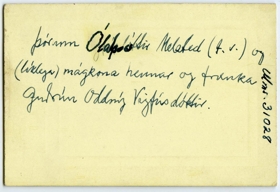 Þórunn Ólafsdóttir Melsted (t.v.) og
(líklega) mágkona hennar og frænka
Guðrún Oddný Vigfúsdóttir.
Mms. 31028